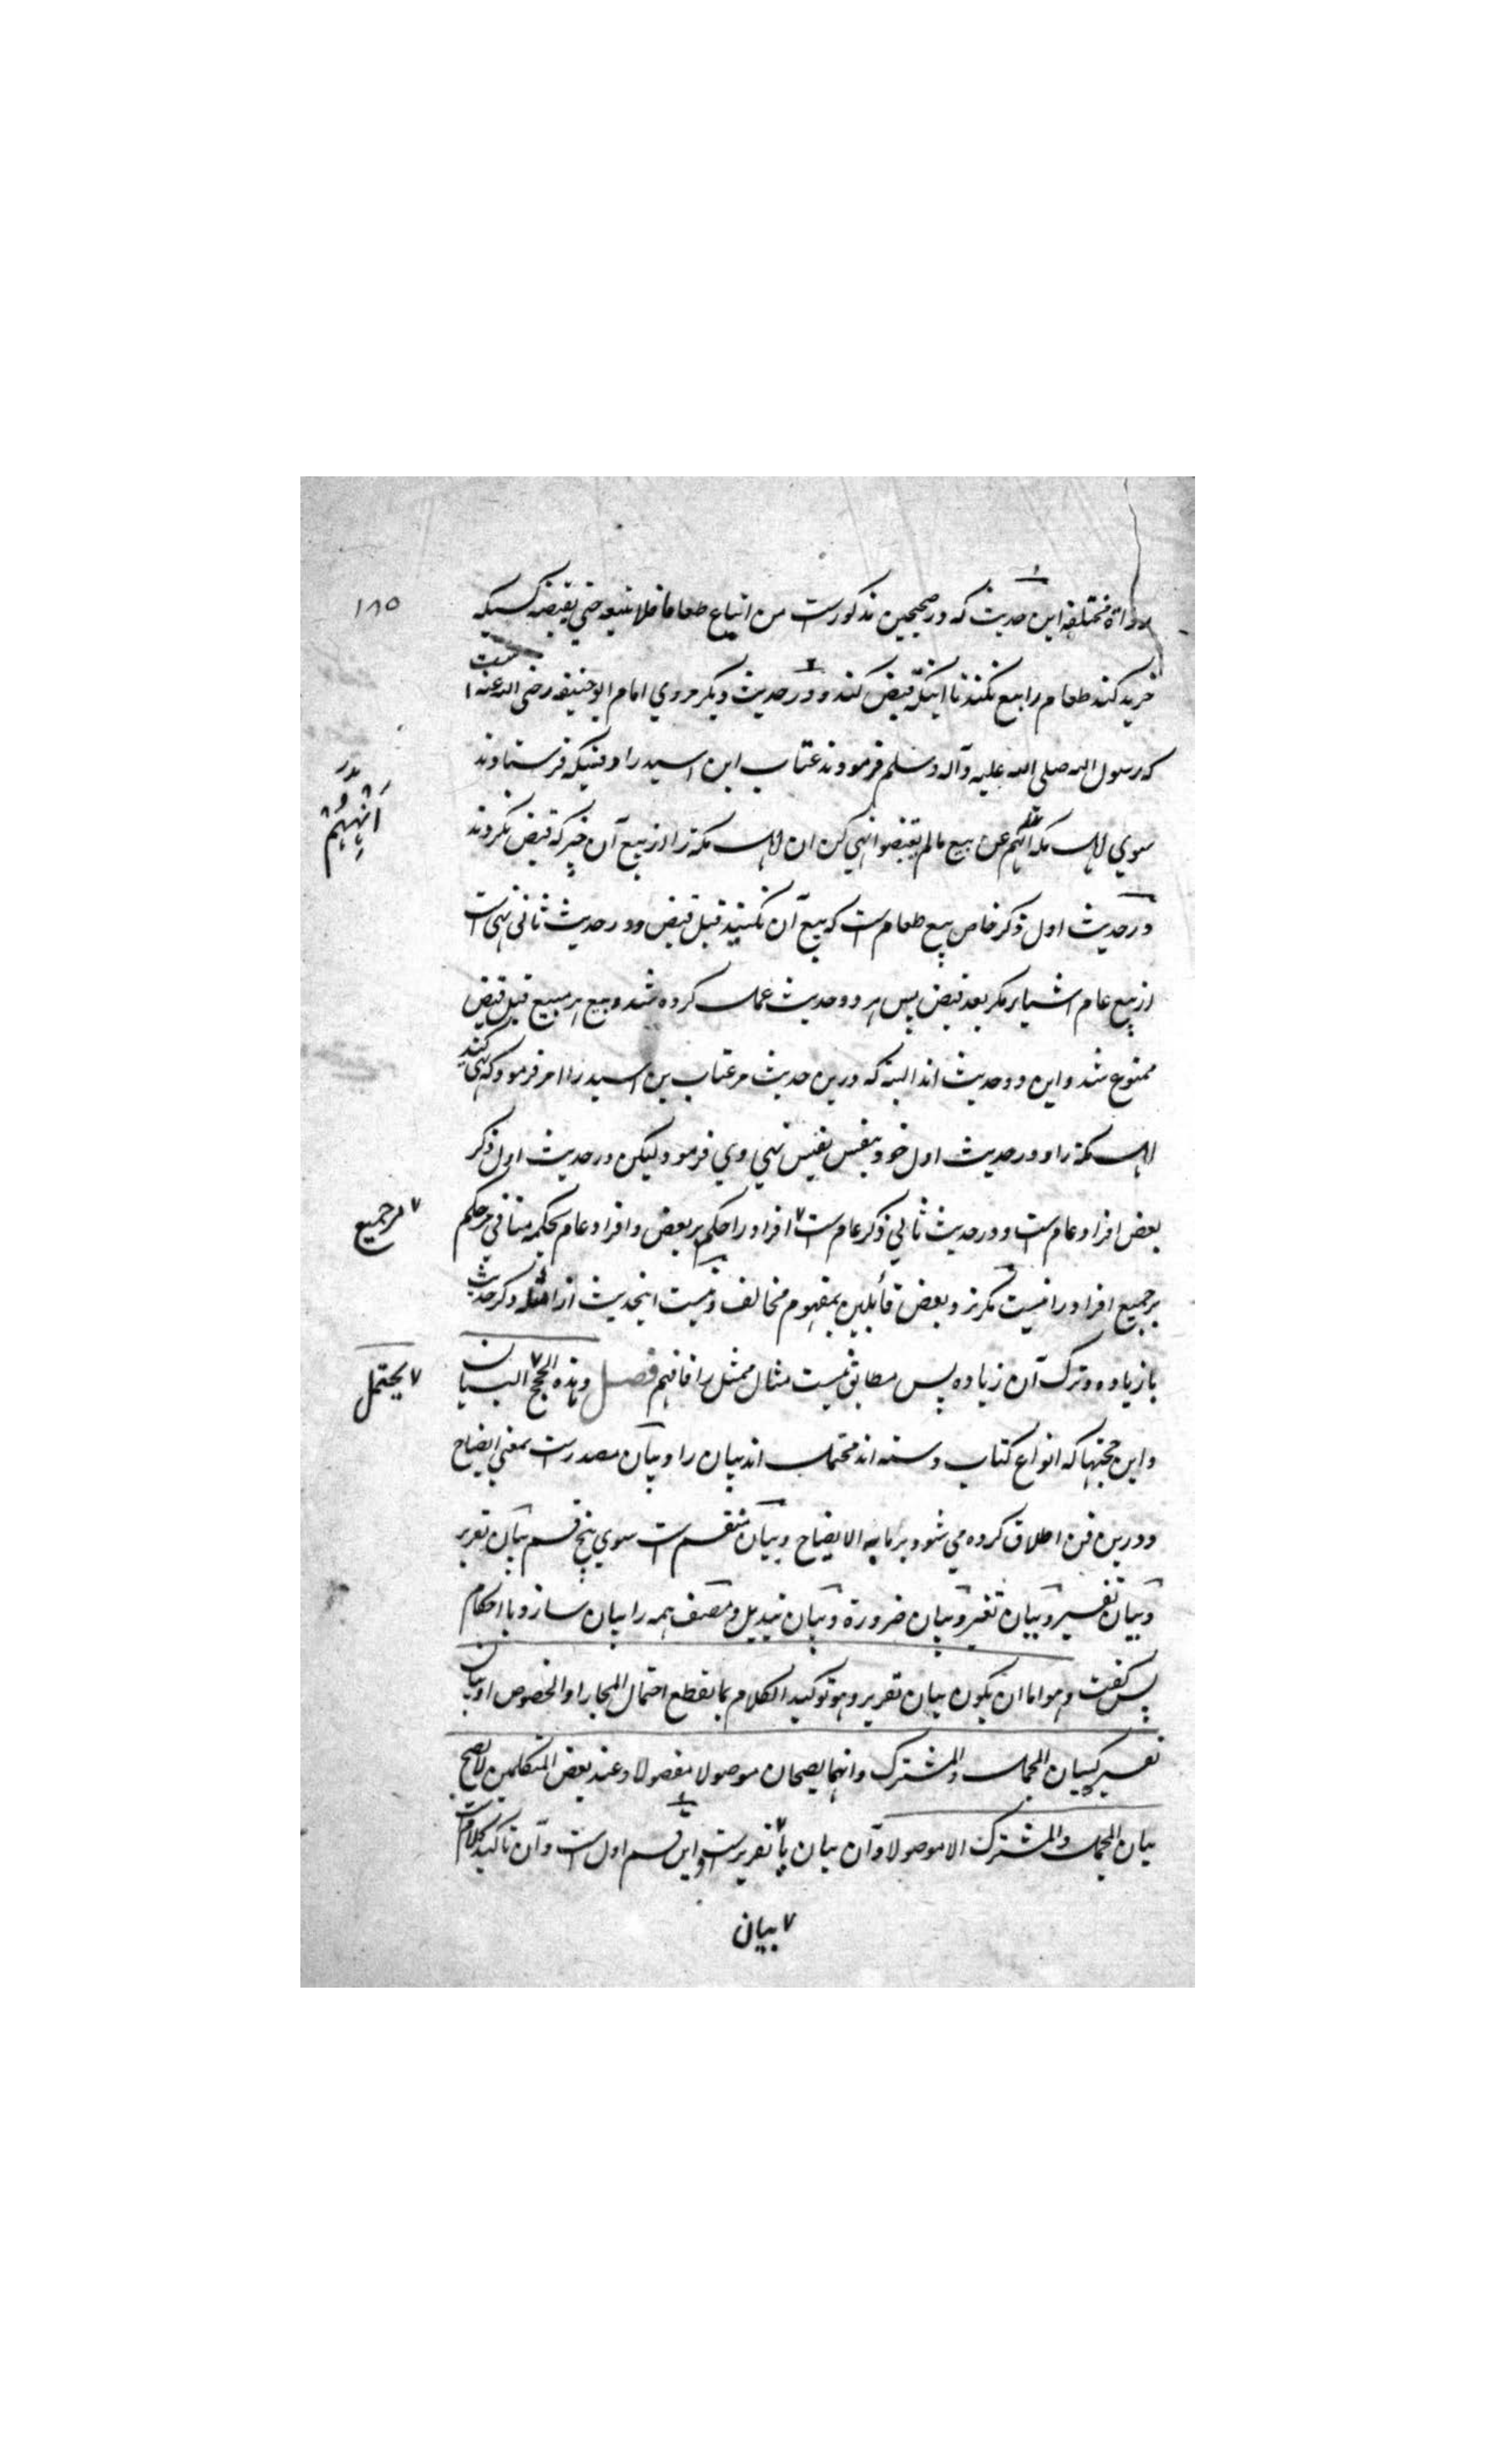 ۱۸۵
رواة مختلفه این حدیث که در صحیحین مذکورست من ابتاع طعاما فلا یبیعه حتی یقبضه کسیکه
خرید کند طعام را بیع نکند تا اینکه قبض کند و در حدیث دیگر مروي امام ابو حنیفه رضی الله عنه است
که رسول الله صلی الله علیه وآله وسلم فرمودند عتاب ابن اسید را وقتیکه فرستادند
سوي اهل مکه انههم عن بیع مالم یقبضوا نهي کن ان اهل مکة را از بیع آن چیز که قبض نکردند
انههم
در حدیث اول ذکر خاص بیع طعام ست که بیع آن نکنید قبل قبض و در حدیث ثانی نهي است
از بیع عام اشیا بر مگر بعد قبض پس هر دو حدیث عمل کرده شد و بیع هر مبیع قبل قبض
ممنوع شد و این دو حدیث اند البته که درین حدیث مر عتاب بن اسید را امر فرمود که نهي کند
اهل مکة را و در حدیث اول خود بنفس نفیس نهي وي فرمود لیکن در حدیث اول ذکر
بعض افراد عام ست و در حدیث ثاني ذکر عام ست ۷ افراد را حکم بر بعض و افراد عام بحکمه منافي مر حکم
۷ مر جمیع
بر جمیع افراد را نیست مگر نزد بعض قایلین بمفهوم مخالف و نیست اینحدیث از امثله ذکر حدیث
با زیاده و ترک آن زیاده پس مطابق نیست مثال ممثل را فافهم فصل وهذه الحجج ۷ البیان
۷ یحتمل
و این حجتها که انواع کتاب و سنه اند محتمل اند بیان را و بیان مصدرست بمعني ایضاح
و درین فن اطلاق کرده مي شود بر ما به الایضاح و بیان منقسم ست سوي پنج قسم بیان تقریر
و بیان تفسیر و بیان تغیر و بیان ضرورة و بیان تبدیل و مصنف همه را بیان سازد با احکام
پس گفت وهو اما ان یکون بیان تقریر وهو توکید الکلام بما یقطع احتمال المجاز او الخصوص او بیان
تفسیر کبیان المجمل والمشترک وانهما یصحان موصولا مفصولا وعند بعض المتکلمین لا یصح
بیان المجمل والمشترک الا موصولا و آن بیان یا ۷ تقریرست و این قسم اول ست و آن تاکید کلام ست
۷ بیان